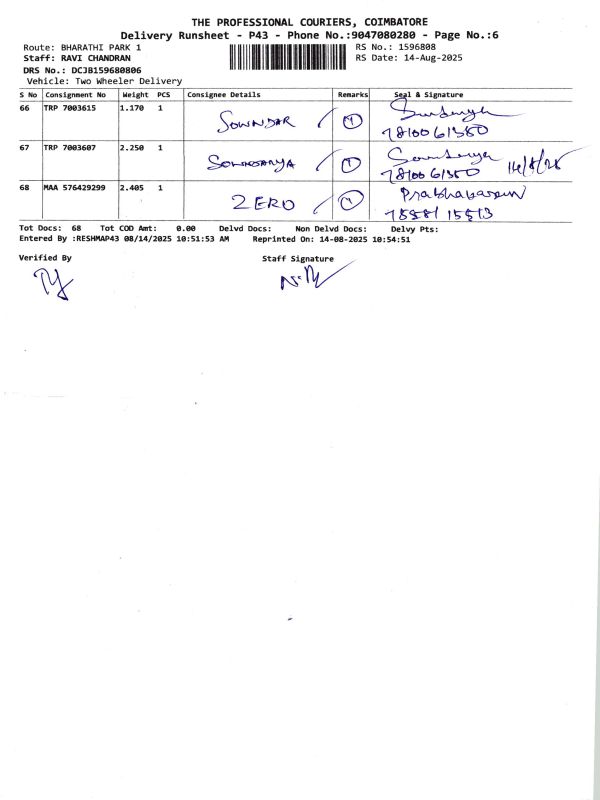 THE PROFESSIONAL COURIERS, COIMBATORE
Delivery Runsheet - P43 - Phone No.:9047080280 - Page No.:6
Route: BHARATHI PARK 1 RS No.: 1596808
Staff: RAVI CHANDRAN RS Date: 14-Aug-2025
DRS No.: DCJB159680806
Vehicle: Two Wheeler Delivery
S No Consignment No Weight PCS Consignee Details Remarks Seal & Signature
66 TRP 7003615 1.170 1 SOWNDAR 1
7810061350
67 TRP 7003607 2.250 1 SOWNDARYA 1 14/8/25
7810061350
68 MAA 576429299 2.405 1 ZERO 1 Prabhakaran
Tot Docs: 68 Tot COD Amt: 0.00 Delvd Docs: Non Delvd Docs: Delvy Pts:
Entered By :RESHMAP43 08/14/2025 10:51:53 AM Reprinted On: 14-08-2025 10:54:51
Verified By Staff Signature